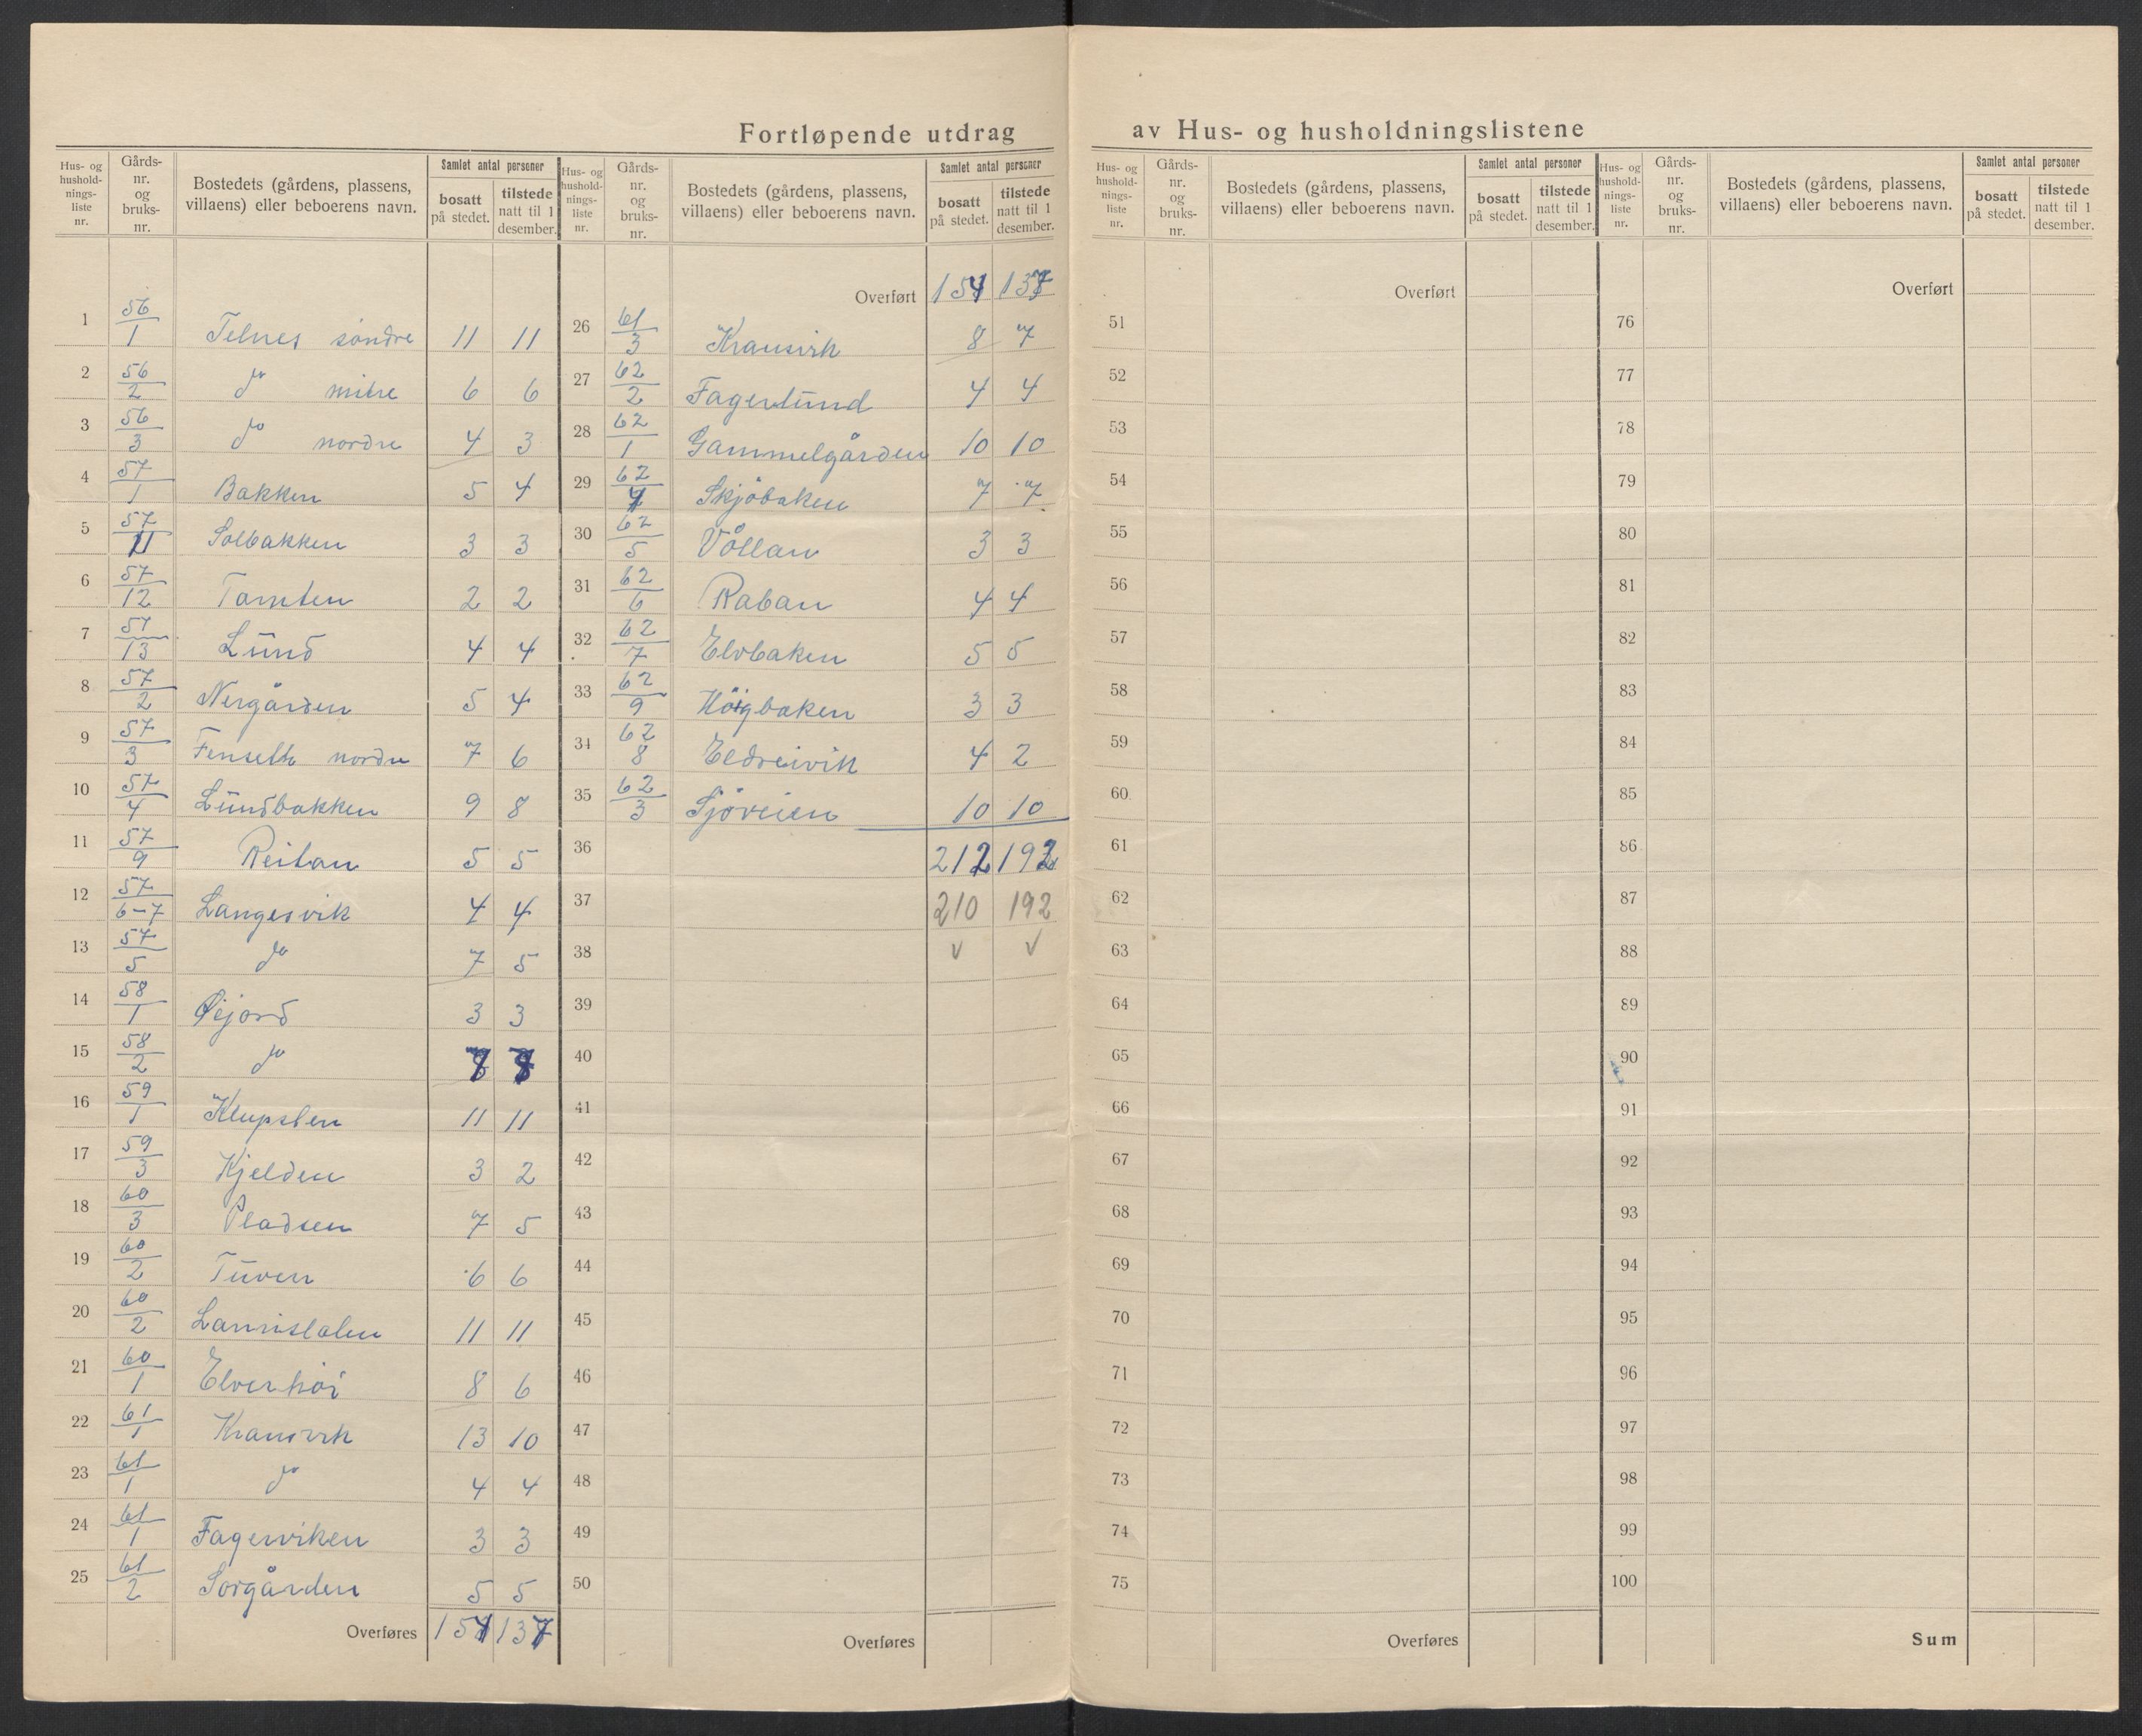 Fortløpende utdrag av Hus- og husholdningslistene
Hus- og hushold-nings-liste nr. | Gårds-nr. og bruks-nr. | Bostedets (gårdens, plassens, villaens) eller beboerens navn. | Samlet antal personer | bosatt på stedet. | tilstede natt til 1 desember.
1 56/1 Telnes söndre 11 11
2 56/2 do mitre 6 6
3 56/3 do nordre 4 3
4 57/1 Bakken 5 4
5 57/11 Solbakken 3 3
6 57/12 Tomten 2 2
7 57/13 Lund 4 4
8 57/2 Nergården 5 4
9 57/3 nordre 7 6
10 57/4 Lundbakken 9 8
11 57/9 Reitan 5 5
12 57/6-7 Langesvik 4 4
13 57/5 do 7 5
14 58/1 Øijord 3 3
15 58/2 do
16 59/1 11 11
17 59/3 Kjelden 3 2
18 60/3 Pladsen 7 5
19 60/2 Tuven 6 6
20 60/2 11 11
21 60/1 Elverhöi 8 6
22 61/1 Kransvik 13 10
23 61/1 do 4 4
24 61/1 Fagerviken 3 3
25 61/2 Sorgården 5 5
Overføres 154 137
Hus- og hushold-nings-liste nr. | Gårds-nr. og bruks-nr. | Bostedets (gårdens, plassens, villaens) eller beboerens navn. | Samlet antal personer | bosatt på stedet. | tilstede natt til 1 desember.
Overført 154 137
26 61/3 Kransvik 8 7
27 62/2 Fagerlund 4 4
28 62/1 Gammelgården 10 10
29 62/4 Skjöbaken 7 7
30 62/5 Völlan 3 3
31 62/6 Raban 4 4
32 62/7 Elvbaken 5 5
33 62/9 Höigbaken 3 3
34 62/8 Eldreivik 4 2
35 62/3 Sjöveien 10 10
36 212 192
37 210 192
38 v v
39
40
41
42
43
44
45
46
47
48
49
50
Overføres
Hus- og hushold-nings-liste nr. | Gårds-nr. og bruks-nr. | Bostedets (gårdens, plassens, villaens) eller beboerens navn. | Samlet antal personer | bosatt på stedet. | tilstede natt til 1 desember.
Overført
51
52
53
54
55
56
57
58
59
60
61
62
63
64
65
66
67
68
69
70
71
72
73
74
75
Overføres
Hus- og hushold-nings-liste nr. | Gårds-nr. og bruks-nr. | Bostedets (gårdens, plassens, villaens) eller beboerens navn. | Samlet antal personer | bosatt på stedet. | tilstede natt til 1 desember.
Overført
76
77
78
79
80
81
82
83
84
85
86
87
88
89
90
91
92
93
94
95
96
97
98
99
100
Sum